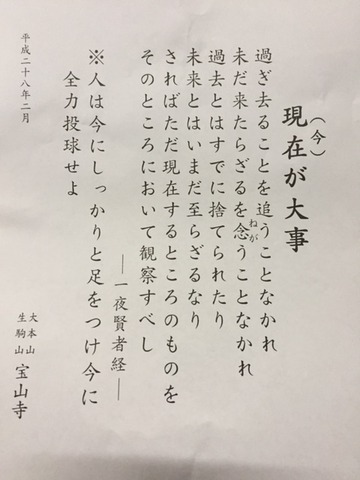 (今)
現在が大事
過ぎ去ることを追うことなかれ
未だ来たらざるを念うことなかれ
ねが
過去とはすでに捨てられたり
未来とはいまだ至らざるなり
さればただ現在するところのものを
そのところにおいて観察すべし
―一夜賢者経―
※人は今にしっかりと足をつけ今に
全力投球せよ
平成二十八年二月
大本山
生駒山
宝山寺